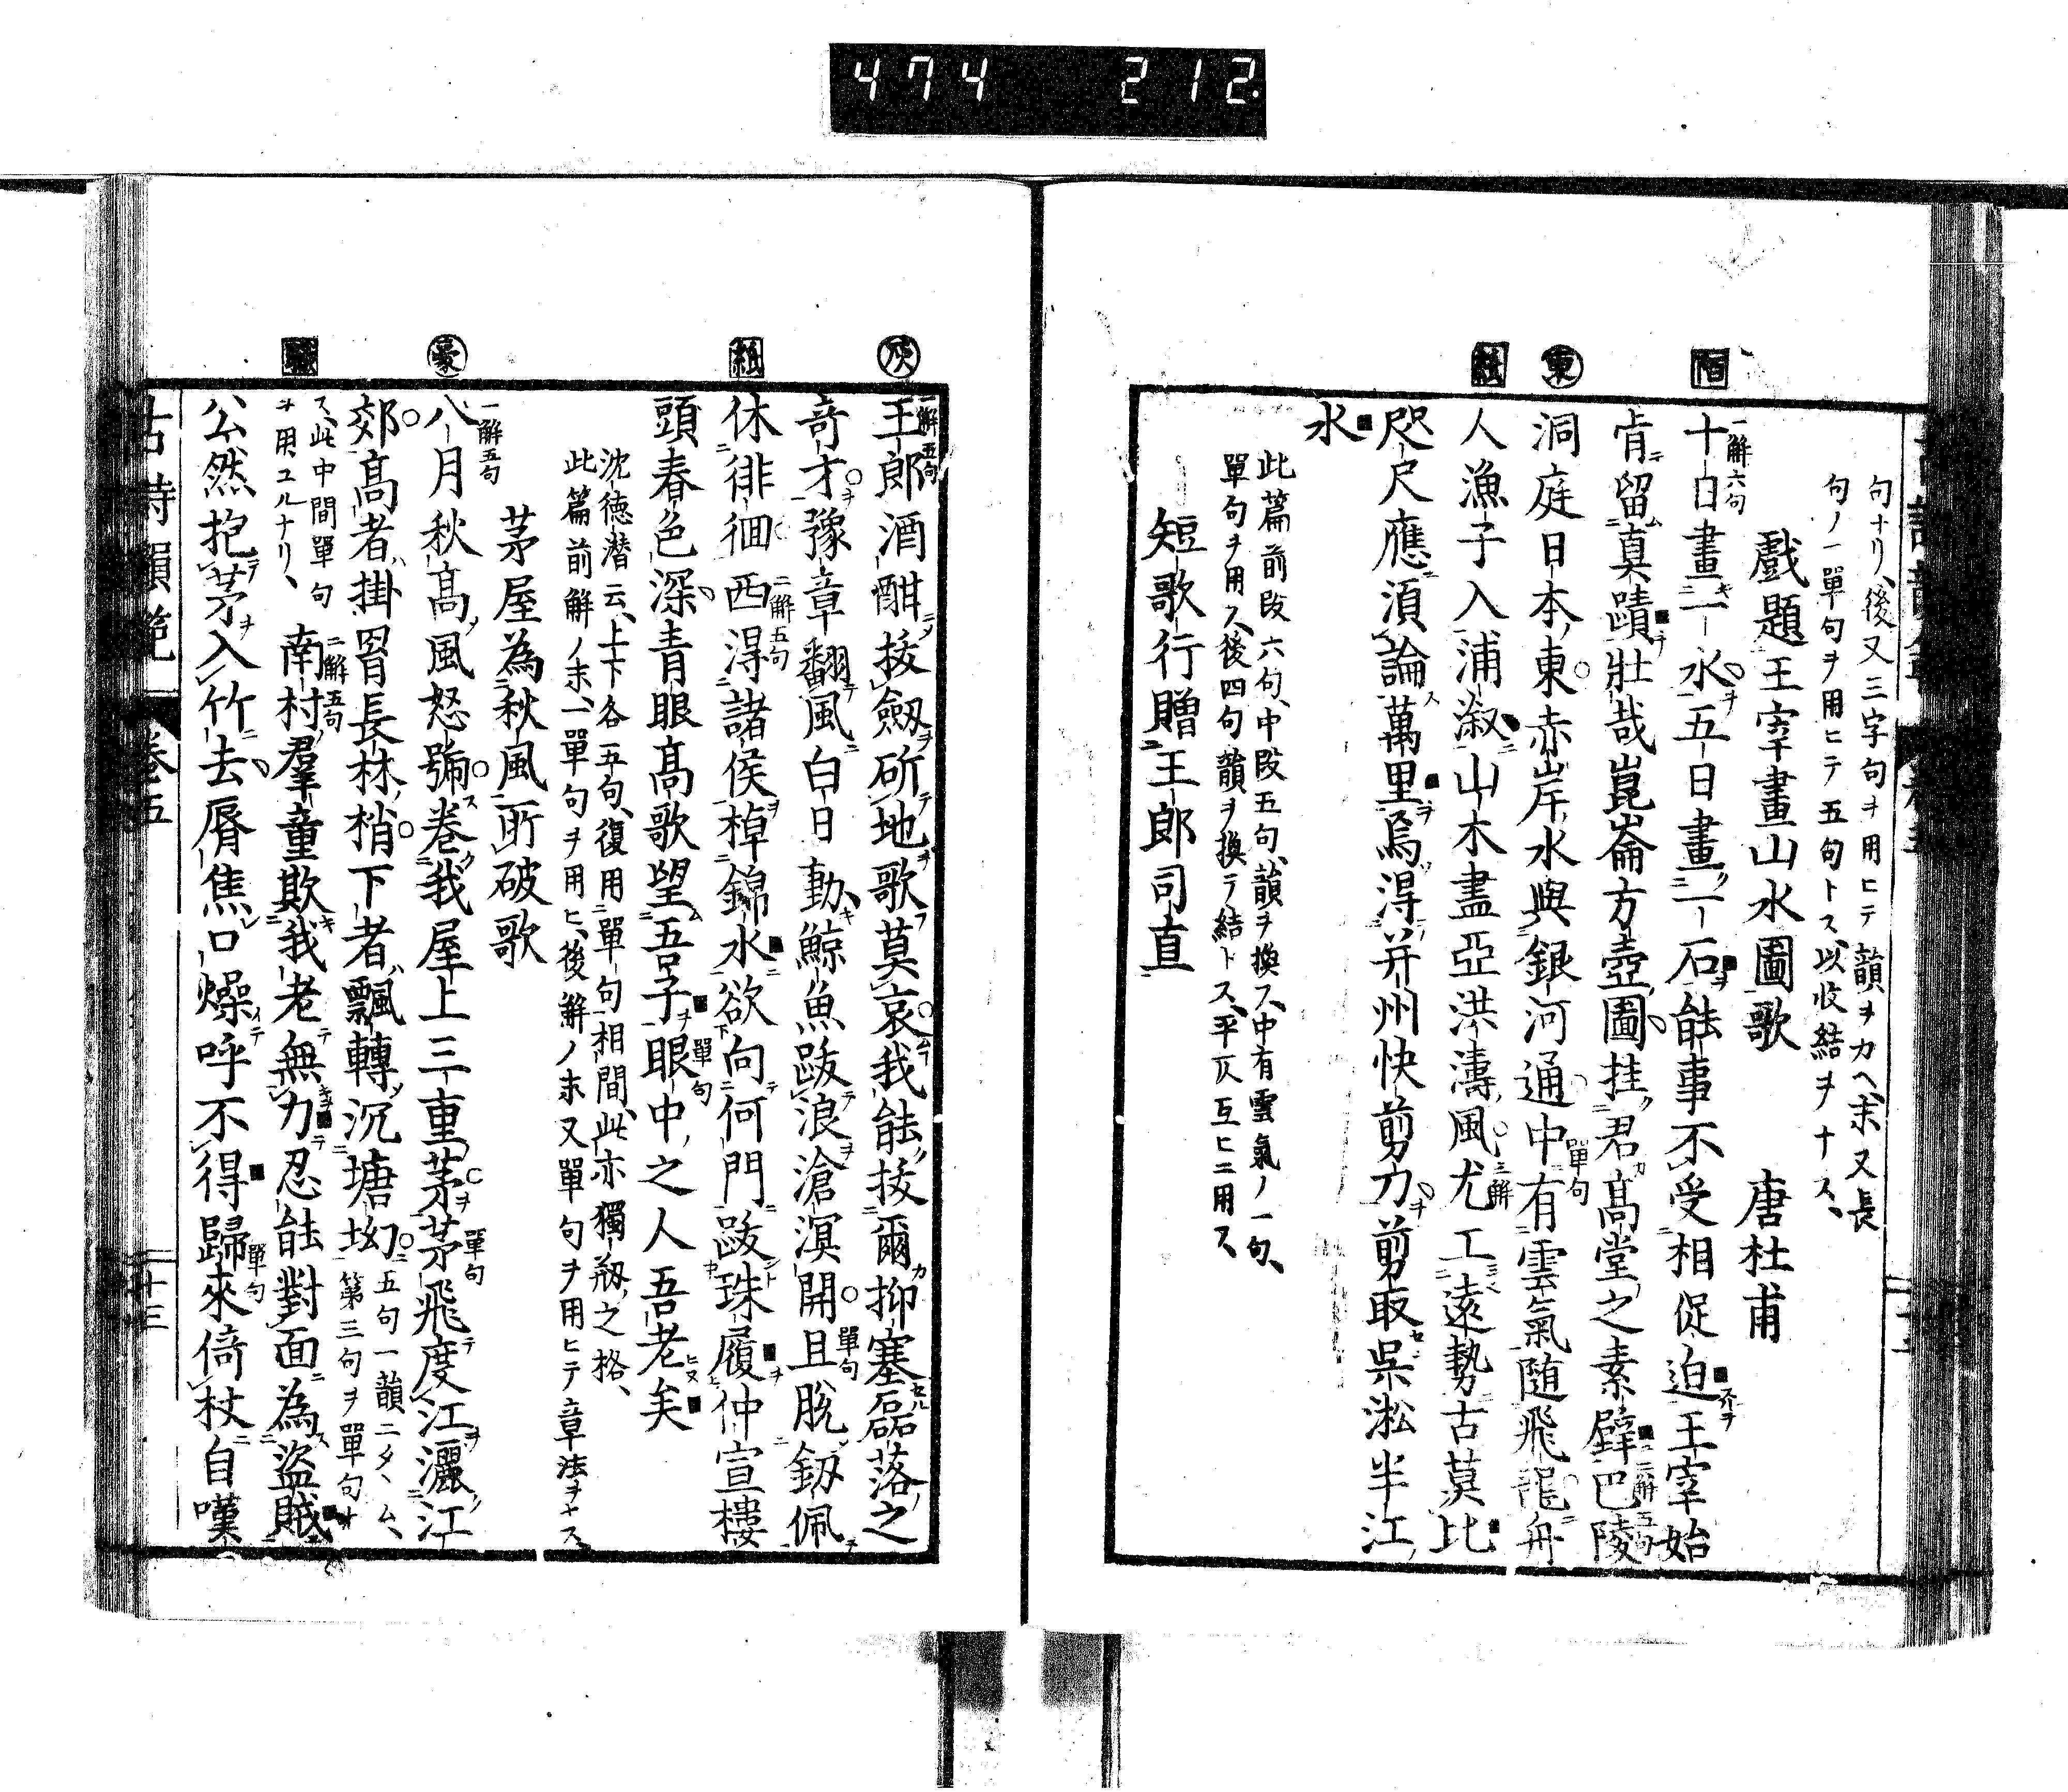 474 212.
句ナリ、後又三字句ヲ用ヒテ韻ヲカヘ、末又長
句ノ一單句ヲ用ヒテ五句トス、以收結ヲナス、
戲題王宰畫山水圖歌 唐杜甫
一解六句
十日畫一水五日畫一石能事不受相促迫王宰始
肯留真蹟壯哉崑崙方壺圖挂君高堂之素壁巴陵
二解五句
洞庭日本東赤岸水與銀河通中有雲氣隨飛龍舟
單句
人漁子入浦漵山木盡亞洪濤風尤工遠勢古莫比
三解
咫尺應須論萬里焉得并州快剪刀剪取吳淞半江
水
此篇前段六句、中段五句、韻ヲ換ス、中有雲氣ノ一句、
單句ヲ用ス、後四句韻ヲ換テ結トス、平仄互ヒニ用ス、
短歌行贈王郎司直
東
紙
灰
紙
豪
一解五句
王郎酒酣拔劔斫地歌莫哀我能拔爾抑塞磊落之
奇才豫章翻風白日動鯨魚跋浪滄溟開且脫釼佩
單句
休徘徊西得諸侯棹錦水欲向何門跋珠履仲宣樓
二解五句
頭春色深青眼高歌望吾子眼中之人吾老矣
單句
沈德潜云、上下各五句、復用單句相間、此亦獨剏之格、
此篇前解ノ末、一單句ヲ用ヒ、後解ノ末又單句ヲ用ヒテ章法ヲナス、
茅屋為秋風所破歌
一解五句
八月秋高風怒號卷我屋上三重茅茅飛度江灑江
單句
郊高者掛罥長林梢下者飄轉沉塘坳
五句一韻ニタヽム、
第三句ヲ單句ナ
ス、此中間單句
ヲ用ユルナリ、
二解五句
南村羣童欺我老無力忍能對面為盜賊
公然抱茅入竹去脣焦口燥呼不得歸來倚杖自嘆
單句
古詩韻範 卷五 二十三